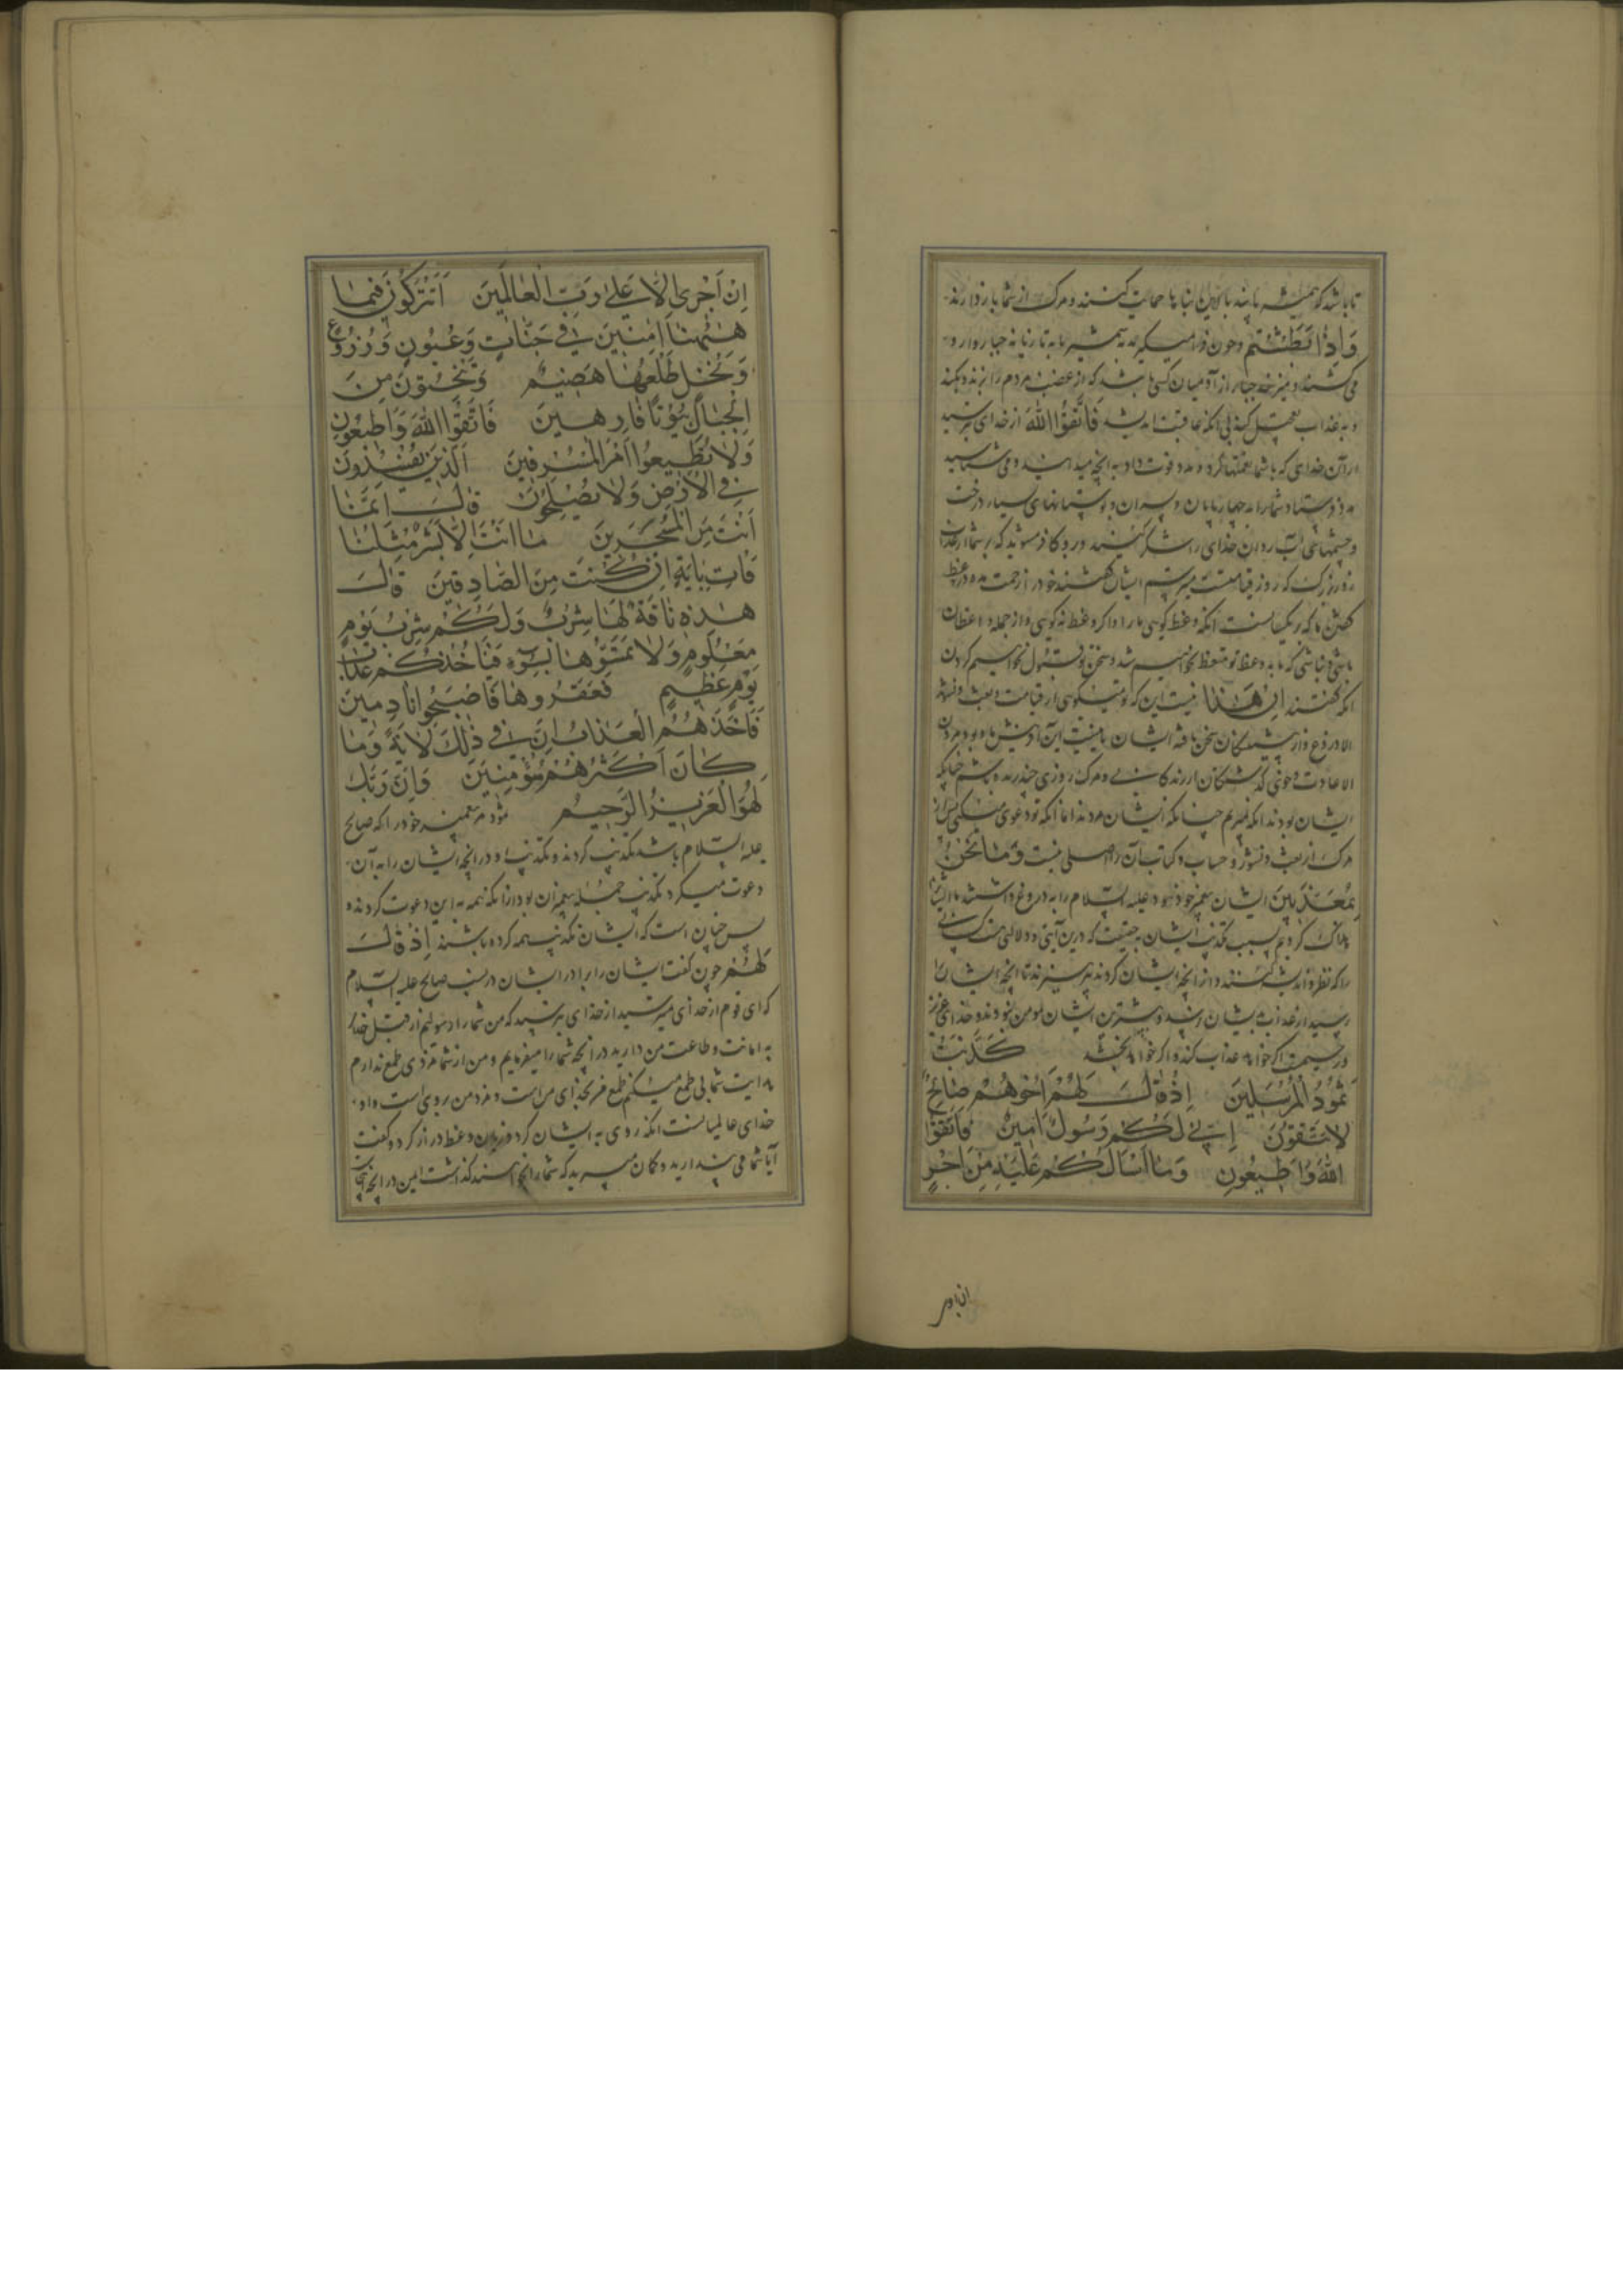 تا باشد که همیشه بمانید یا این بناها حمایت کنند و مرگ از شما باز دارند
وَإِذَا بَطَشْتُمْ و چون فرا میگیرید به شمشیر یا به تازیانه جبار وار و
می کشید و نیز خود جبار از آدمیان کسی باشد که از غضب مردم را بزند و بکشد
و به عذاب کند بی آنکه عاقبت اندیشد فَاتَّقُوا اللهَ از خدای بترسید
از آن خدای که با شما نعمتها کرد و مدد و قوت داد به آنچه میدانید و می شناسید
مدد فرستاد شما را به چهارپایان و پسران و بوستانهای بسیار درخت
و چشمهای آب روان خدای را شکر کنید و بدو کافر مشوید که بر شما از عذاب
روز بزرگ که روز قیامت است میترسم ایشان گفتند خود را زحمت مده در وعظ
گفتن ما که یکسانست آنکه وعظ گویی ما را و اگر وعظ نگویی و از جمله واعظان
باشی و نباشی که ما به وعظ تو متعظ نخواهیم شد و سخن تو قبول نخواهیم کردن
آنگه گفتند اِنْ هٰذَا نیست این که تو میگویی از قیامت و بعث و نشور
الا دروغ و از پیشینگان سخن بافته ایشان یا نیست این آفرینش ما و بود و مردن
الا عادت و خوی گذشتگان از زندگانی و مرگ روزی چند زنده باشیم چنانکه
ایشان بودند آنگه بمیریم چنانکه ایشان مردند اما آنکه تو دعوی میکنی پس از
مرگ از بعث و نشور و حساب و کتاب آن را اصلی نیست وَمَا نَحْنُ
بِمُعَذَّبِينَ ایشان پیغمبر خود هود علیه السلام را به دروغ داشتند ما ایشانرا
هلاک کردیم بسبب تکذیب ایشان به حقیقت که درین آیتی و دلالتی هست کسانی
را که نظر و اندیشه کنند و از آنچه ایشان کردند بپرهیزند تا آنچه ایشان را
رسید از عذاب بدیشان نرسد و بیشترین ایشان مومن نبودند و خدای عزیز
و رحیمست اگر خواهد عذاب کند و اگر خواهد ببخشد كَذَّبَتْ
ثَمُودُ الْمُرْسَلِينَ إِذْ قَالَ لَهُمْ أَخُوهُمْ صَالِحٌ
أَلَا تَتَّقُونَ إِنِّي لَكُمْ رَسُولٌ أَمِينٌ فَاتَّقُوا
اللهَ وَأَطِيعُونِ وَمَا أَسْأَلُكُمْ عَلَيْهِ مِنْ أَجْرٍ
ان اجری
إِنْ أَجْرِىَ إِلَّا عَلَىٰ رَبِّ الْعَالَمِينَ أَتُتْرَكُونَ فِيمَا
هٰهُنَا آمِنِينَ فِي جَنَّاتٍ وَعُيُونٍ وَزُرُوعٍ
وَنَخْلٍ طَلْعُهَا هَضِيمٌ وَتَنْحِتُونَ مِنَ
الْجِبَالِ بُيُوتًا فَارِهِينَ فَاتَّقُوا اللهَ وَأَطِيعُونِ
وَلَا تُطِيعُوا أَمْرَ الْمُسْرِفِينَ الَّذِينَ يُفْسِدُونَ
فِي الْأَرْضِ وَلَا يُصْلِحُونَ قَالُوا إِنَّمَا
أَنْتَ مِنَ الْمُسَحَّرِينَ مَا أَنْتَ إِلَّا بَشَرٌ مِثْلُنَا
فَأْتِ بِآيَةٍ إِنْ كُنْتَ مِنَ الصَّادِقِينَ قَالَ
هٰذِهِ نَاقَةٌ لَهَا شِرْبٌ وَلَكُمْ شِرْبُ يَوْمٍ
مَعْلُومٍ وَلَا تَمَسُّوهَا بِسُوءٍ فَيَأْخُذَكُمْ عَذَابُ
يَوْمٍ عَظِيمٍ فَعَقَرُوهَا فَأَصْبَحُوا نَادِمِينَ
فَأَخَذَهُمُ الْعَذَابُ إِنَّ فِي ذٰلِكَ لَآيَةً وَمَا
كَانَ أَكْثَرُهُمْ مُؤْمِنِينَ وَإِنَّ رَبَّكَ
لَهُوَ الْعَزِيزُ الرَّحِيمُ ثمود مر پیغمبر خود را که صالح
علیه السلام باشد تکذیب کردند و تکذیب او در آنچه ایشان را به آن
دعوت میکرد تکذیب جمله پیغمبران بود از آنکه همه به این دعوت کردند و
پس چنان است که ایشان تکذیب همه کرده باشند إِذْ قَالَ
لَهُمْ چون گفت ایشان را برادر ایشان در نسب صالح علیه السلام
که ای قوم از خدای میترسید از خدای بترسید که من شما را رسولیم از قبل خدای
به امانت و طاعت من دارید در آنچه شما را میفرمایم و من از شما مزدی طمع ندارم
هدایت شما بی طمع میکنم طمع من بخدای من است و مزد من بروی است و او
خدای عالمیانست آنگه روی به ایشان کرد و زبان وعظ دراز کرد و گفت
آیا شما می پندارید و گمان میبرید که شما را بخواهند گذاشت ایمن در آنچه